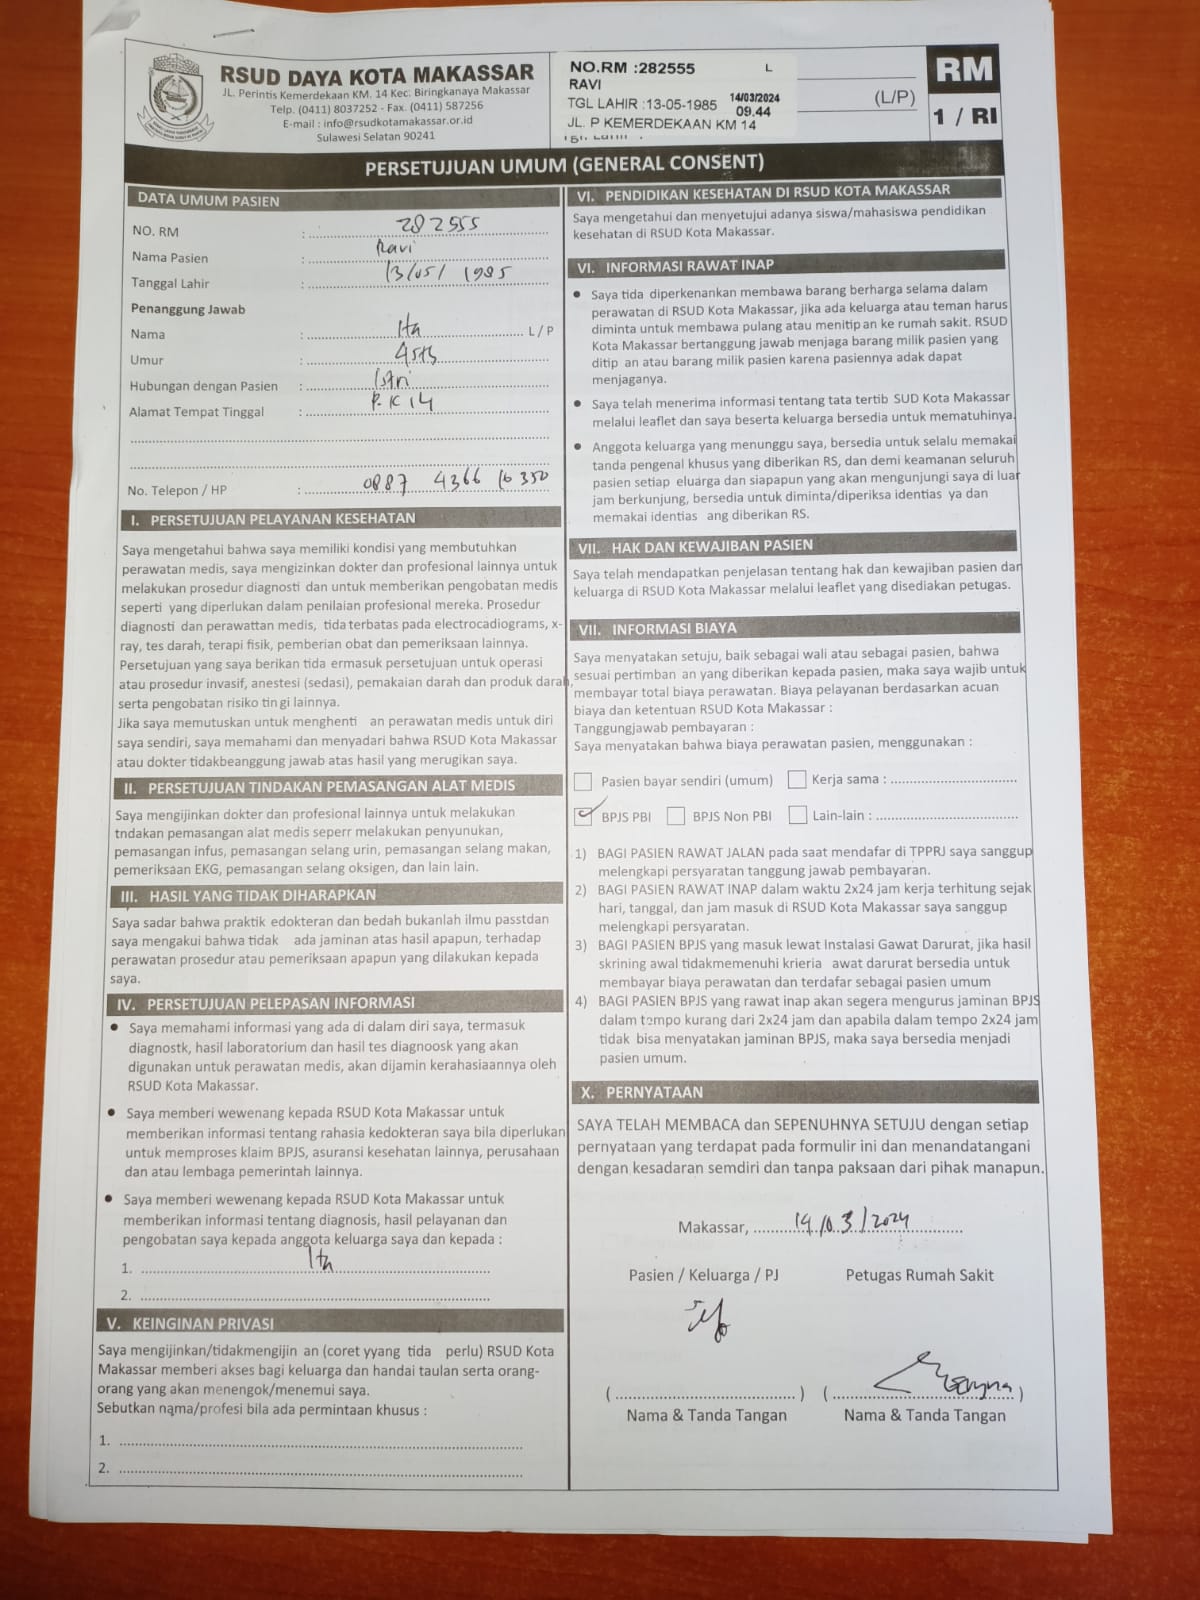 RSUD DAYA KOTA MAKASSAR
JL. Perintis Kemerdekaan KM. 14 Kec. Biringkanaya Makassar
Telp. (0411) 8037252 - Fax. (0411) 587256
E-mail : info@rsudkotamakassar.or.id
Sulawesi Selatan 90241
NO.RM :282555 L
RAVI
TGL LAHIR :13-05-1985 14/03/2024 09.44
JL. P KEMERDEKAAN KM 14
(L/P)
RM
1 / RI
PERSETUJUAN UMUM (GENERAL CONSENT)
DATA UMUM PASIEN
NO. RM : 282555
Nama Pasien : Ravi
Tanggal Lahir : 13/05/ 1985
Penanggung Jawab
Nama : Ita L / P
Umur : 45th
Hubungan dengan Pasien : Istri
Alamat Tempat Tinggal : P. K 14
No. Telepon / HP : 0887 4366 16350
I. PERSETUJUAN PELAYANAN KESEHATAN
Saya mengetahui bahwa saya memiliki kondisi yang membutuhkan
perawatan medis, saya mengizinkan dokter dan profesional lainnya untuk
melakukan prosedur diagnosti dan untuk memberikan pengobatan medis
seperti yang diperlukan dalam penilaian profesional mereka. Prosedur
diagnosti dan perawattan medis, tida terbatas pada electrocadiograms, x-
ray, tes darah, terapi fisik, pemberian obat dan pemeriksaan lainnya.
Persetujuan yang saya berikan tida ermasuk persetujuan untuk operasi
atau prosedur invasif, anestesi (sedasi), pemakaian darah dan produk darah,
serta pengobatan risiko tin gi lainnya.
Jika saya memutuskan untuk menghenti an perawatan medis untuk diri
saya sendiri, saya memahami dan menyadari bahwa RSUD Kota Makassar
atau dokter tidakbeanggung jawab atas hasil yang merugikan saya.
II. PERSETUJUAN TINDAKAN PEMASANGAN ALAT MEDIS
Saya mengijinkan dokter dan profesional lainnya untuk melakukan
tndakan pemasangan alat medis seperr melakukan penyunukan,
pemasangan infus, pemasangan selang urin, pemasangan selang makan,
pemeriksaan EKG, pemasangan selang oksigen, dan lain lain.
III. HASIL YANG TIDAK DIHARAPKAN
Saya sadar bahwa praktik edokteran dan bedah bukanlah ilmu passtdan
saya mengakui bahwa tidak ada jaminan atas hasil apapun, terhadap
perawatan prosedur atau pemeriksaan apapun yang dilakukan kepada
saya.
IV. PERSETUJUAN PELEPASAN INFORMASI
• Saya memahami informasi yang ada di dalam diri saya, termasuk
diagnostk, hasil laboratorium dan hasil tes diagnoosk yang akan
digunakan untuk perawatan medis, akan dijamin kerahasiaannya oleh
RSUD Kota Makassar.
• Saya memberi wewenang kepada RSUD Kota Makassar untuk
memberikan informasi tentang rahasia kedokteran saya bila diperlukan
untuk memproses klaim BPJS, asuransi kesehatan lainnya, perusahaan
dan atau lembaga pemerintah lainnya.
• Saya memberi wewenang kepada RSUD Kota Makassar untuk
memberikan informasi tentang diagnosis, hasil pelayanan dan
pengobatan saya kepada anggota keluarga saya dan kepada :
1. Ita
2.
V. KEINGINAN PRIVASI
Saya mengijinkan/tidakmengijin an (coret yyang tida perlu) RSUD Kota
Makassar memberi akses bagi keluarga dan handai taulan serta orang-
orang yang akan menengok/menemui saya.
Sebutkan nama/profesi bila ada permintaan khusus :
1.
2.
VI. PENDIDIKAN KESEHATAN DI RSUD KOTA MAKASSAR
Saya mengetahui dan menyetujui adanya siswa/mahasiswa pendidikan
kesehatan di RSUD Kota Makassar.
VI. INFORMASI RAWAT INAP
• Saya tida diperkenankan membawa barang berharga selama dalam
perawatan di RSUD Kota Makassar, jika ada keluarga atau teman harus
diminta untuk membawa pulang atau menitip an ke rumah sakit. RSUD
Kota Makassar bertanggung jawab menjaga barang milik pasien yang
ditip an atau barang milik pasien karena pasiennya adak dapat
menjaganya.
• Saya telah menerima informasi tentang tata tertib SUD Kota Makassar
melalui leaflet dan saya beserta keluarga bersedia untuk mematuhinya.
• Anggota keluarga yang menunggu saya, bersedia untuk selalu memakai
tanda pengenal khusus yang diberikan RS, dan demi keamanan seluruh
pasien setiap eluarga dan siapapun yang akan mengunjungi saya di luar
jam berkunjung, bersedia untuk diminta/diperiksa identias ya dan
memakai identias ang diberikan RS.
VII. HAK DAN KEWAJIBAN PASIEN
Saya telah mendapatkan penjelasan tentang hak dan kewajiban pasien dan
keluarga di RSUD Kota Makassar melalui leaflet yang disediakan petugas.
VII. INFORMASI BIAYA
Saya menyatakan setuju, baik sebagai wali atau sebagai pasien, bahwa
sesuai pertimban an yang diberikan kepada pasien, maka saya wajib untuk
membayar total biaya perawatan. Biaya pelayanan berdasarkan acuan
biaya dan ketentuan RSUD Kota Makassar :
Tanggungjawab pembayaran :
Saya menyatakan bahwa biaya perawatan pasien, menggunakan :
Pasien bayar sendiri (umum) Kerja sama :
✓ BPJS PBI BPJS Non PBI Lain-lain :
1) BAGI PASIEN RAWAT JALAN pada saat mendafar di TPPRJ saya sanggup
melengkapi persyaratan tanggung jawab pembayaran.
2) BAGI PASIEN RAWAT INAP dalam waktu 2x24 jam kerja terhitung sejak
hari, tanggal, dan jam masuk di RSUD Kota Makassar saya sanggup
melengkapi persyaratan.
3) BAGI PASIEN BPJS yang masuk lewat Instalasi Gawat Darurat, jika hasil
skrining awal tidakmemenuhi krieria awat darurat bersedia untuk
membayar biaya perawatan dan terdafar sebagai pasien umum
4) BAGI PASIEN BPJS yang rawat inap akan segera mengurus jaminan BPJS
dalam tempo kurang dari 2x24 jam dan apabila dalam tempo 2x24 jam
tidak bisa menyatakan jaminan BPJS, maka saya bersedia menjadi
pasien umum.
X. PERNYATAAN
SAYA TELAH MEMBACA dan SEPENUHNYA SETUJU dengan setiap
pernyataan yang terdapat pada formulir ini dan menandatangani
dengan kesadaran semdiri dan tanpa paksaan dari pihak manapun.
Makassar, 14/03/2024
Pasien / Keluarga / PJ Petugas Rumah Sakit
( ) ( )
Nama & Tanda Tangan Nama & Tanda Tangan